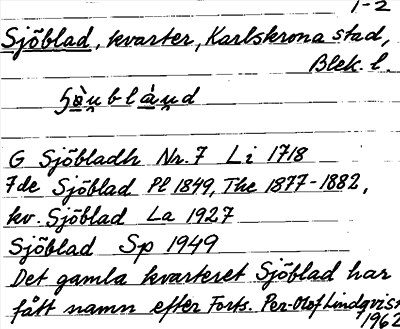 1-2
Sjöblad, kvarter, Karlskrona stad,
Blek. l.
G Sjöbladh Nr. 7 Li 1718
7de Sjöblad Pl 1849, The 1877-1882,
kv. Sjöblad La 1927
Sjöblad Sp 1949
Det gamla kvarteret Sjöblad har
fått namn efter Forts. Per-Olof Lindqvist
1962